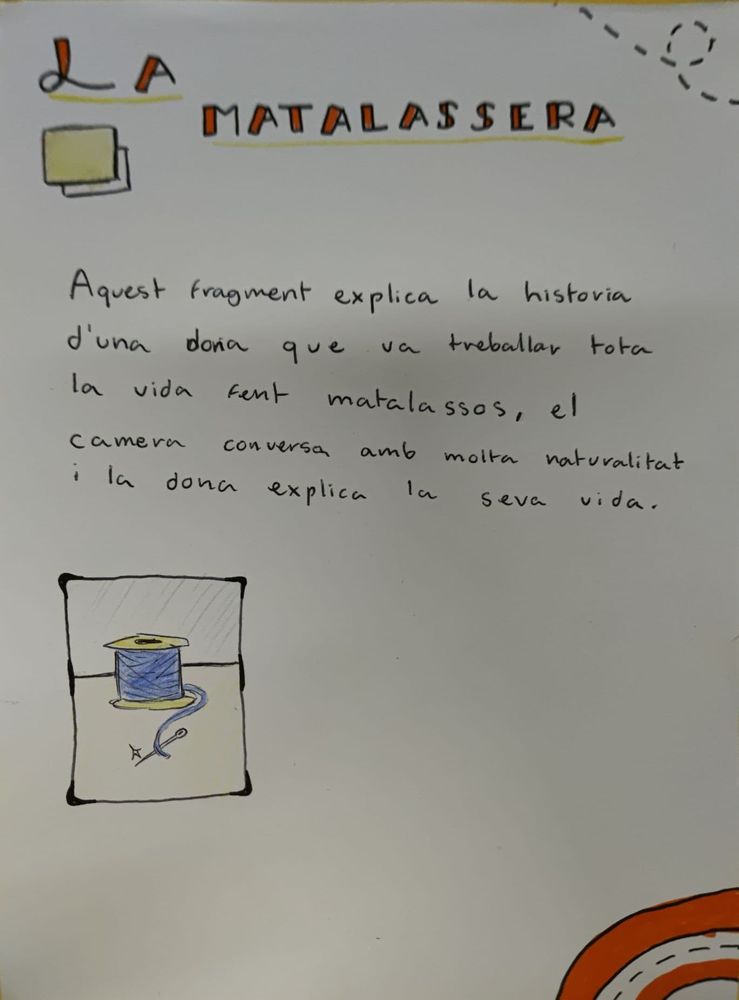 LA
MATALASSERA
Aquest fragment explica la historia
d'una dona que va treballar tota
la vida fent matalassos, el
camera conversa amb molta naturalitat
i la dona explica la seva vida.